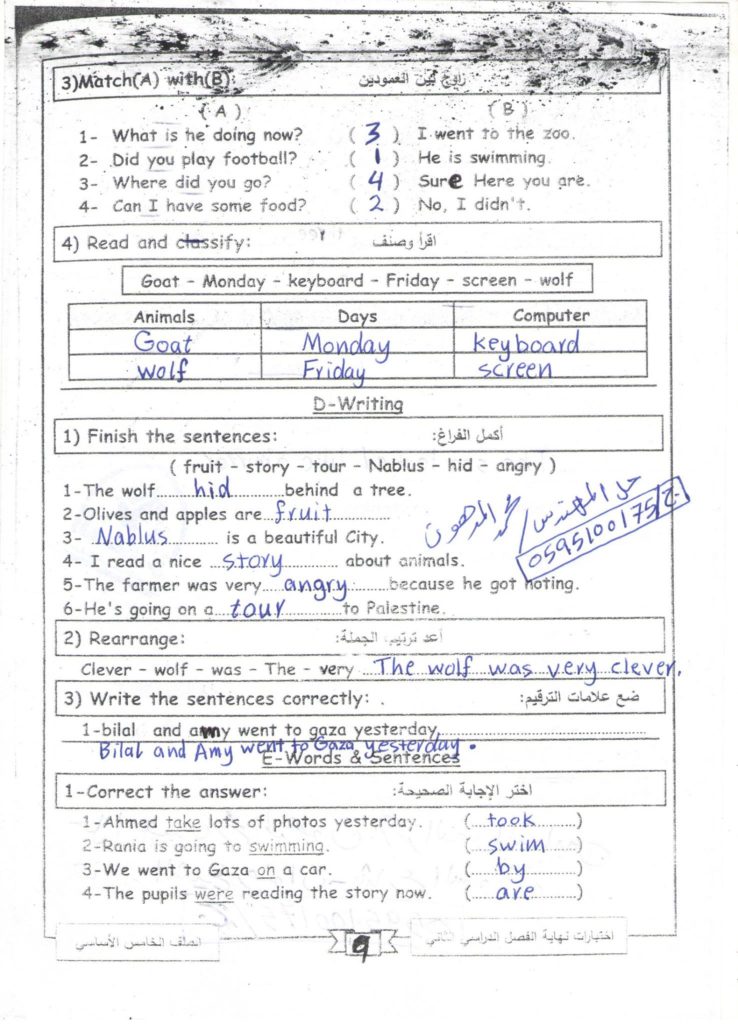 3)Match(A) with(B): زاوج بين العمودين
( A ) ( B )
1- What is he doing now? ( 3 ) I went to the zoo.
2- Did you play football? ( 1 ) He is swimming.
3- Where did you go? ( 4 ) Sure Here you are.
4- Can I have some food? ( 2 ) No, I didn't.
4) Read and classify: اقرأ وصنف
Goat - Monday - keyboard - Friday - screen - wolf
Animals Days Computer
Goat Monday keyboard
wolf Friday screen
D-Writing
1) Finish the sentences: أكمل الفراغ:
( fruit - story - tour - Nablus - hid - angry )
1-The wolf......hid......behind a tree.
2-Olives and apples are fruit......
3- Nablus...... is a beautiful City.
4- I read a nice ...story...... about animals.
5-The farmer was very....angry......because he got noting.
6-He's going on a...tour......to Palestine.
حل المهندس / محمد المدهون
ج/0595100175
2) Rearrange: أعد ترتيب الجملة:
Clever - wolf - was - The - very ...The wolf was very clever.
3) Write the sentences correctly: . ضع علامات الترقيم:
1-bilal and amy went to gaza yesterday......
Bilal and Amy went to Gaza yesterday.
E-Words & Sentences
1-Correct the answer: اختر الإجابة الصحيحة:
1-Ahmed take lots of photos yesterday. (....took......)
2-Rania is going to swimming. (....swim......)
3-We went to Gaza on a car. (......by......)
4-The pupils were reading the story now. (......are......)
الصف الخامس الأساسي 9 اختبارات نهاية الفصل الدراسي الثاني